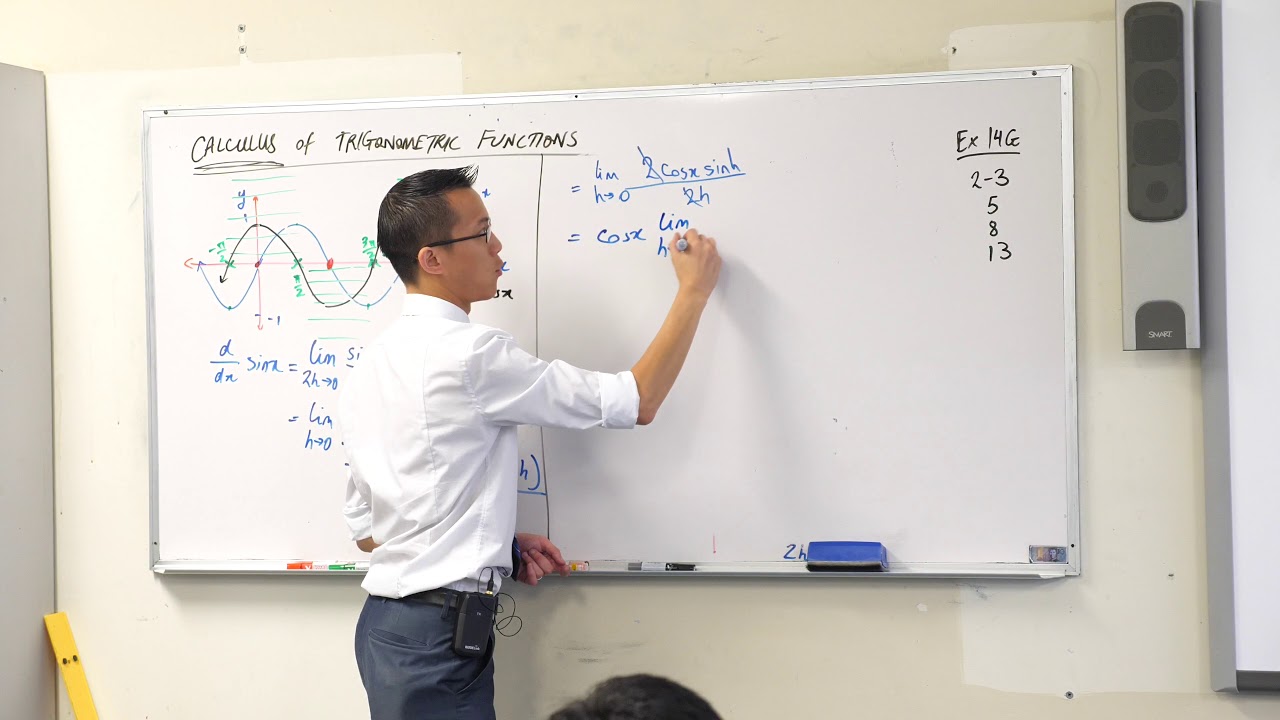 CALCULUS of TRIGONOMETRIC FUNCTIONS
y
x
1
-π/2
π/2
3π/2
-1
x
d/dx sinx = lim 2h→0 si
= lim h→0
h)
= lim h→0 2cosx sinh / 2h
= cosx lim h
2h
Ex 14G
2-3
5
8
13
SMART